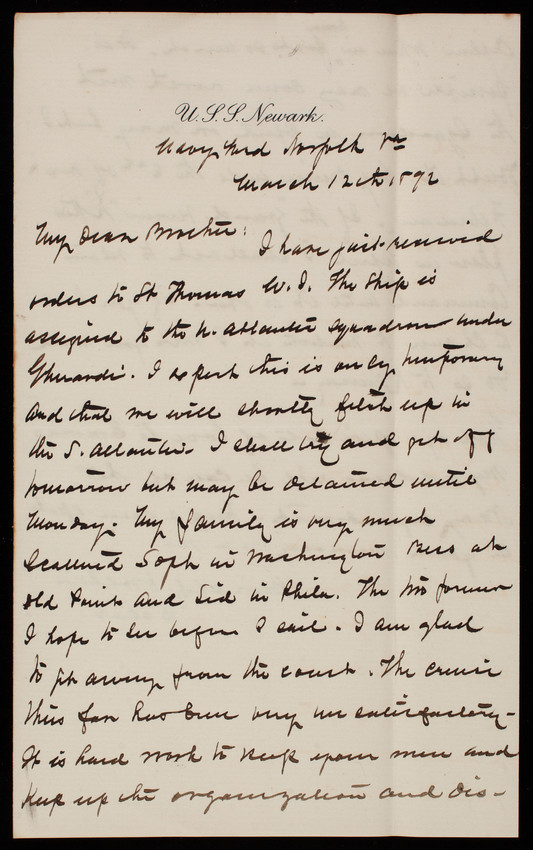 U.S.S. Newark.
Navy Yard Norfolk Va
March 12th 1892
My Dear Brother:
I have just received
orders to St Thomas W.I. The ship is
assigned to the N. Atlantic Squadron under
Gherardi. I expect this is only temporary
and that we will shortly fetch up in
the S. Atlantic. I shall try and get off
tomorrow but may be detained until
Monday. My family is very much
scattered Soph in Washington Bess at
Old Point and Sid in Phila. The two former
I hope to see before I sail. I am glad
to get away from the coast. The cruise
thus far has been very unsatisfactory-
It is hard work to keep your men and
keep up the organization and dis-